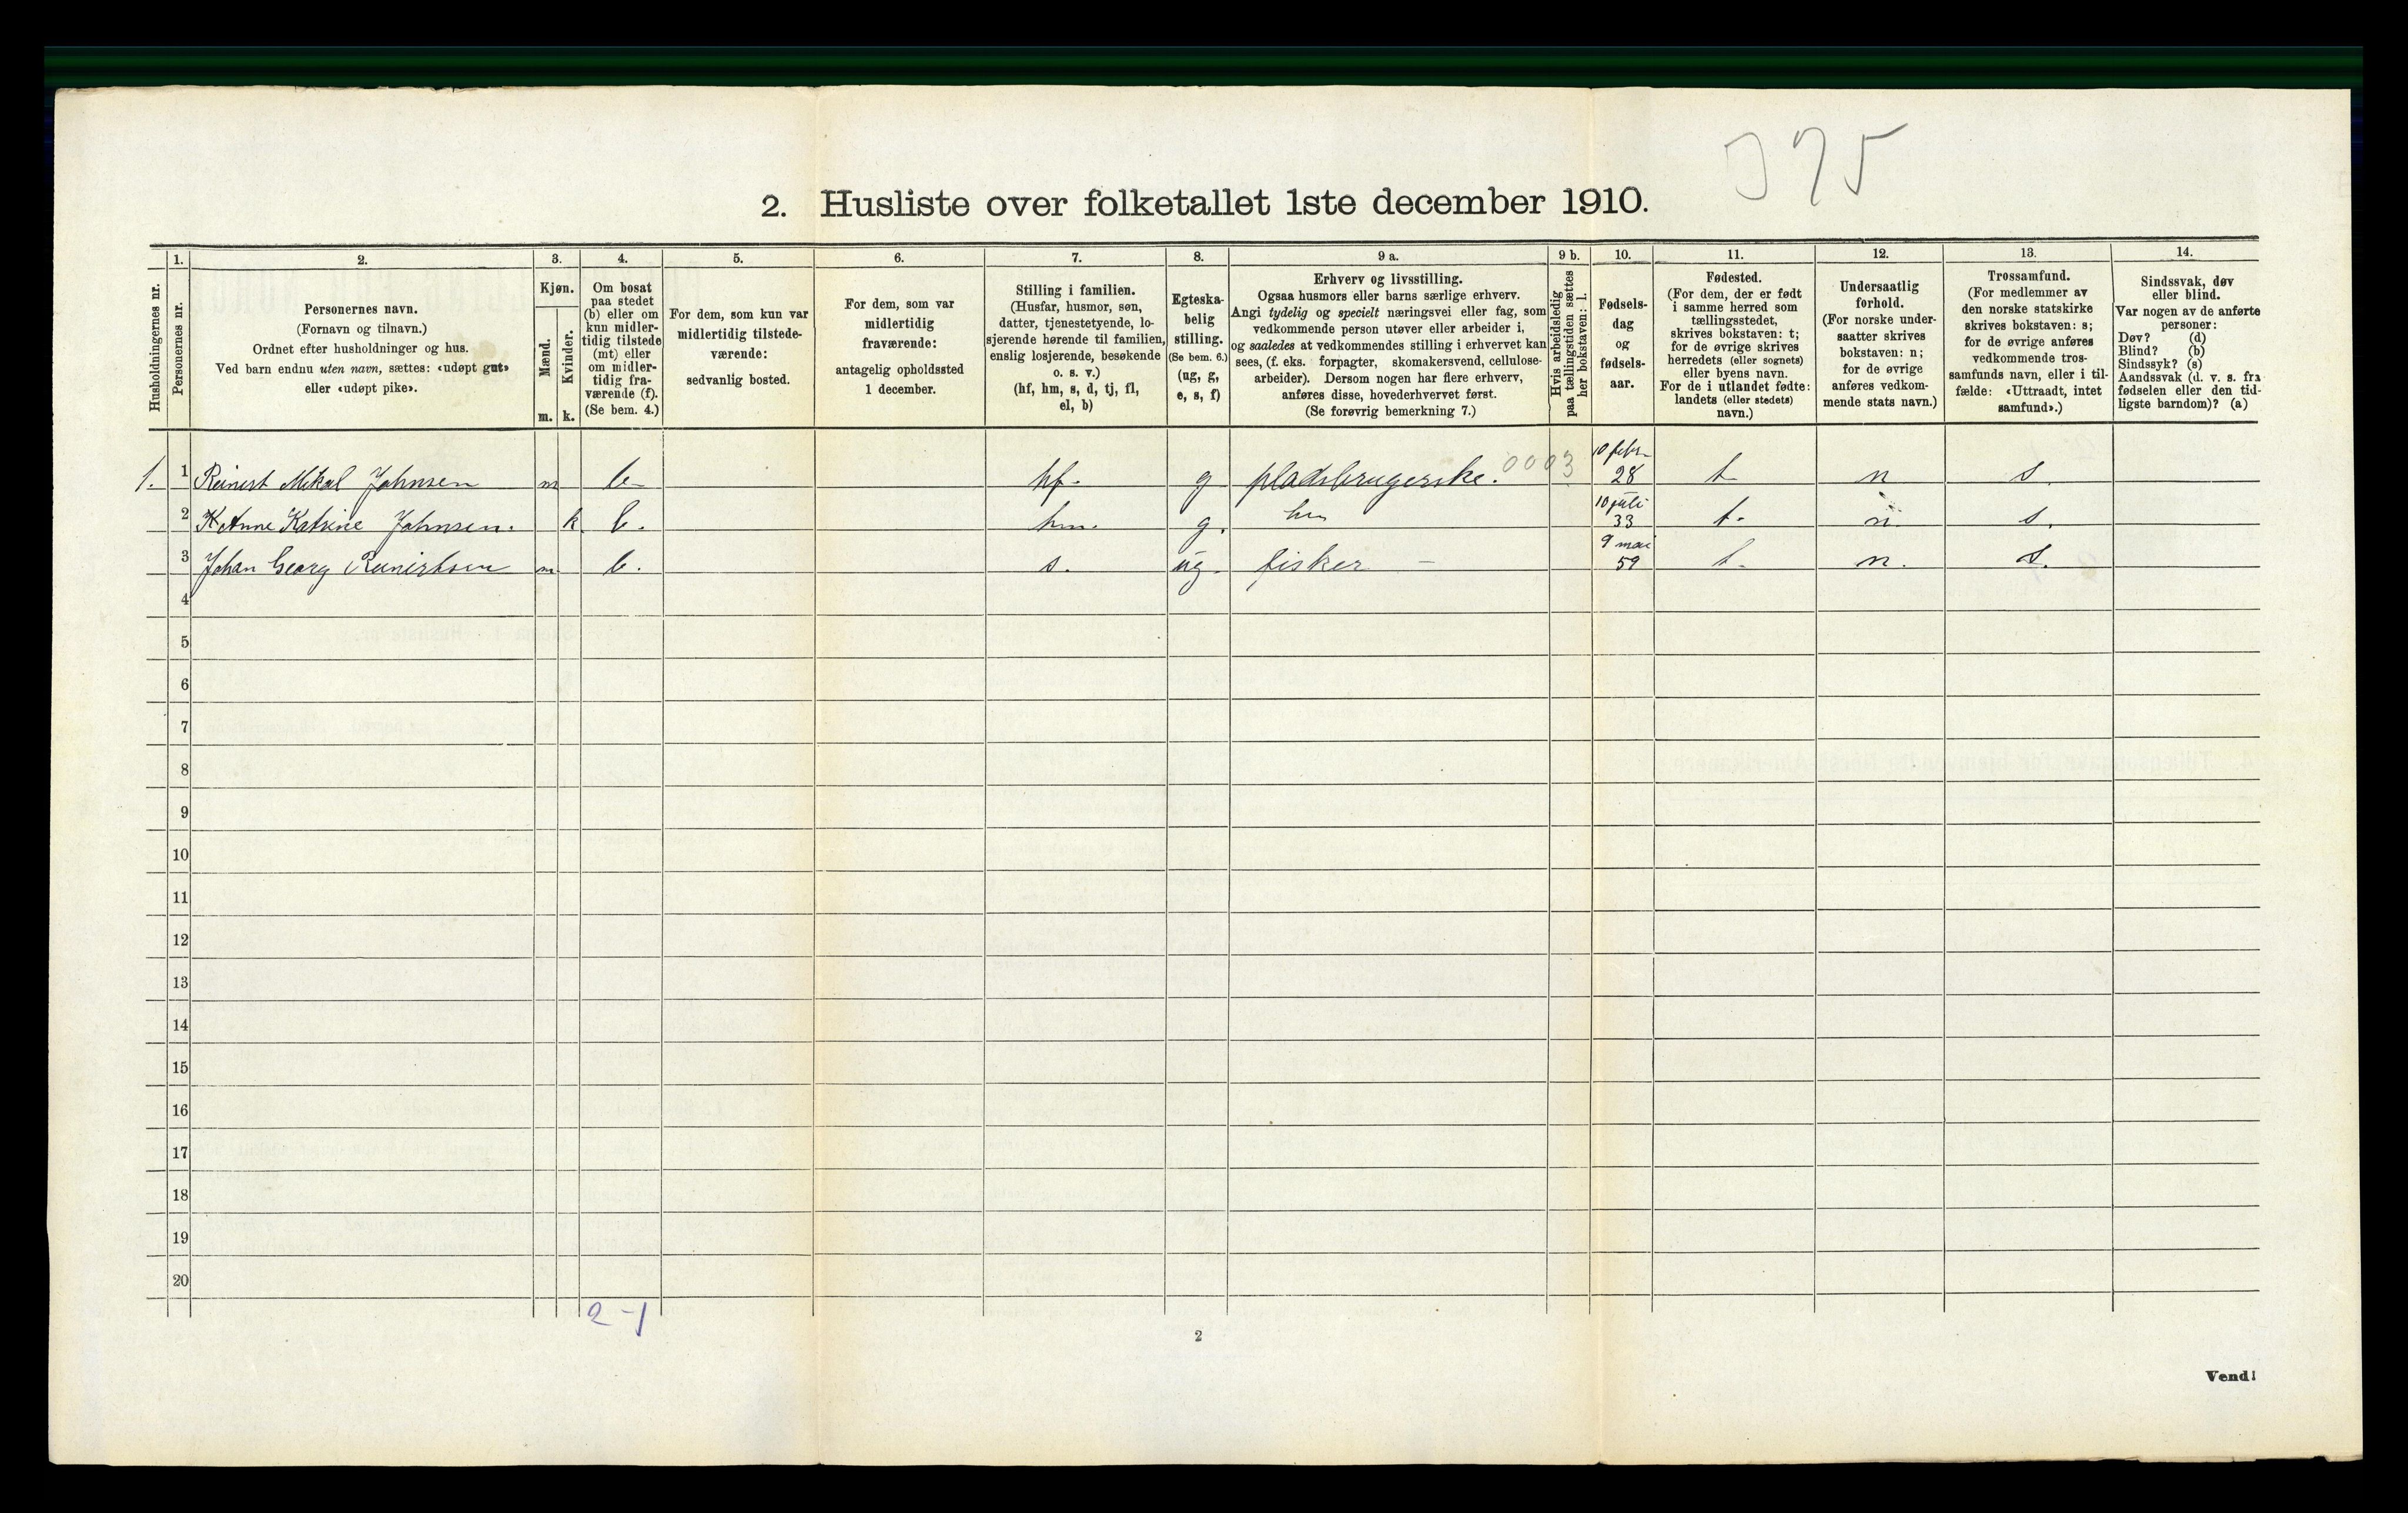 395
2. Husliste over folketallet 1ste december 1910.
Husholdningernes nr.
1. Personernes nr.
2. Personernes navn.
(Fornavn og tilnavn.)
Ordnet efter husholdninger og hus.
Ved barn endnu uten navn, sættes: «udøpt gut»
eller «udøpt pike».
3. Kjøn.
Mænd. m.
Kvinder. k.
4. Om bosat
paa stedet
(b) eller om
kun midler-
tidig tilstede
(mt) eller
om midler-
tidig fra-
værende (f).
(Se bem. 4.)
5. For dem, som kun var
midlertidig tilstede-
værende:
sedvanlig bosted.
6. For dem, som var
midlertidig
fraværende:
antagelig opholdssted
1 december.
7. Stilling i familien.
(Husfar, husmor, søn,
datter, tjenestetyende, lo-
sjerende hørende til familien,
enslig losjerende, besøkende
o. s. v.)
(hf, hm, s, d, tj, fl,
el, b)
8. Egteska-
belig
stilling.
(Se bem. 6.)
(ug, g,
e, s, f)
9 a. Erhverv og livsstilling.
Ogsaa husmors eller barns særlige erhverv.
Angi tydelig og specielt næringsvei eller fag, som
vedkommende person utøver eller arbeider i,
og saaledes at vedkommendes stilling i erhvervet kan
sees, (f. eks. forpagter, skomakersvend, cellulose-
arbeider). Dersom nogen har flere erhverv,
anføres disse, hovederhvervet først.
(Se forøvrig bemerkning 7.)
9 b. Hvis arbeidsledig
paa tællingstiden sættes
her bokstaven: l.
10. Fødsels-
dag
og
fødsels-
aar.
11. Fødested.
(For dem, der er født
i samme herred som
tællingsstedet,
skrives bokstaven: t;
for de øvrige skrives
herredets (eller sognets)
eller byens navn.
For de i utlandet fødte:
landets (eller stedets)
navn.)
12. Undersaatlig
forhold.
(For norske under-
saatter skrives
bokstaven: n;
for de øvrige
anføres vedkom-
mende stats navn.)
13. Trossamfund.
(For medlemmer av
den norske statskirke
skrives bokstaven: s;
for de øvrige anføres
vedkommende tros-
samfunds navn, eller i til-
fælde: «Uttraadt, intet
samfund».)
14. Sindssvak, døv
eller blind.
Var nogen av de anførte
personer:
Døv? (d)
Blind? (b)
Sindssyk? (s)
Aandssvak (d. v. s. fra
fødselen eller den tid-
ligste barndom)? (a)
1. 1 Reinert Mikal Johnsen m b hf. g pladsbrugerske. 0003 10 febr 28 t n s.
2 Anne Katrine Johnsen. k b. hm. g. hm 10 juli 33 t. n. s.
3 Johan Georg Reinertsen m b. s. ug. fisker - 9 mai 59 t. n. s.
4
5
6
7
8
9
10
11
12
13
14
15
16
17
18
19
20
2-1
2
Vend!